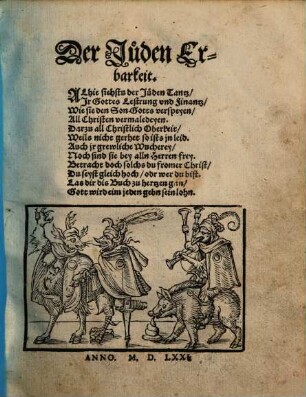 Der Jůden Er-
barkeit.
Alhie siehstu der Jüden Tantz/
Jr Gottes Lestrung vnd Finantz/
Wie sie den Son Gotts verspeyen/
All Christen vermaledeyen.
Darzu all Christlich Oberkeit/
Weils nicht gerhet so ists jn leid.
Auch jr grewliche Wucherey/
Noch sind sie bey alln Herren frey.
Betracht doch solchs du fromer Christ/
Du seyst gleich hoch/ odr wer du bist.
Las dir dis Buch zu hertzen gan/
Gott wird eim jeden gebn sein lohn.
ANNO. M. D. LXXI